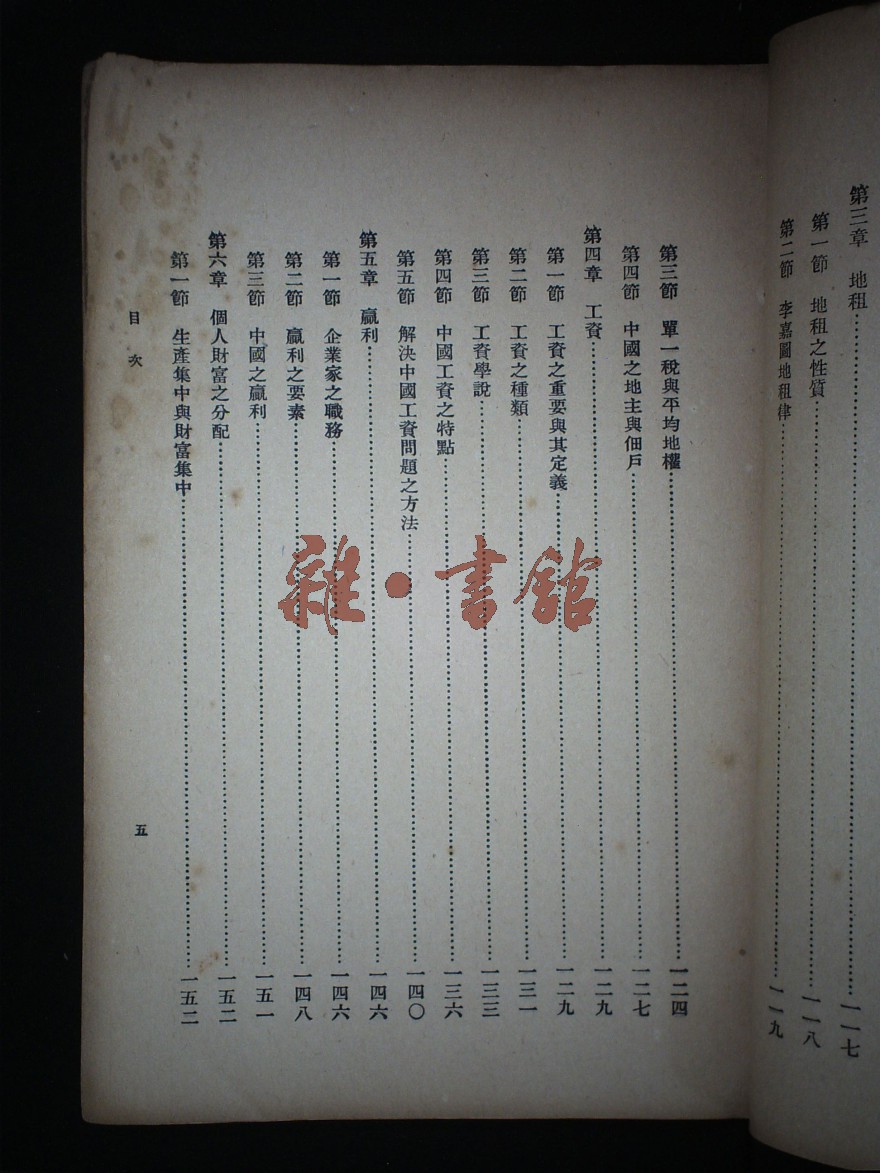 第三章　地租……一一七
第一節　地租之性質……一一八
第二節　李嘉圖地租律……一一九
第三節　單一稅與平均地權……一二四
第四節　中國之地主與佃戶……一二七
第四章　工資……一二九
第一節　工資之重要與其定義……一二九
第二節　工資之種類……一三一
第三節　工資學說……一三三
第四節　中國工資之特點……一三六
第五節　解決中國工資問題之方法……一四〇
第五章　贏利……一四六
第一節　企業家之職務……一四六
第二節　贏利之要素……一四八
第三節　中國之贏利……一五一
第六章　個人財富之分配……一五二
第一節　生產集中與財富集中……一五二
目次
五
雜·書館